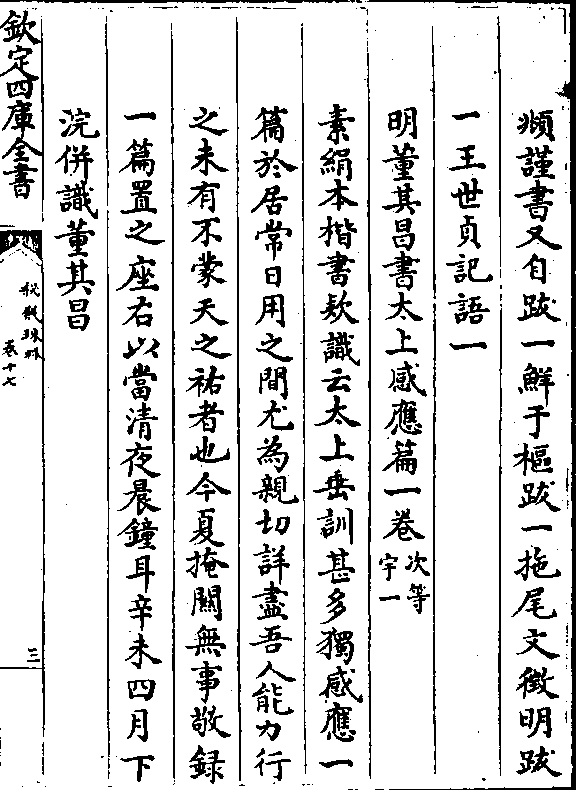 頫謹書又自跋一鮮于樞跋一拖尾文徵明跋
一王世貞記語一
明董其昌書太上感應篇一卷次等宇一
素絹本楷書欵識云太上垂訓甚多獨感應一
篇於居常日用之間尤為親切詳盡吾人能力行
之未有不蒙天之祐者也今夏掩關無事敬録
一篇置之座右以當清夜晨鐘耳辛未四月下
浣併識董其昌
欽定四庫全書
秘殿珠林
卷十七
三